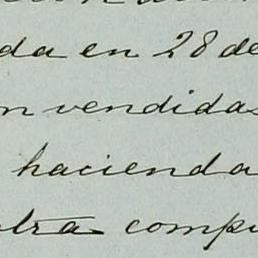 da en 28 de
n vendidas
hacienda
otra comp